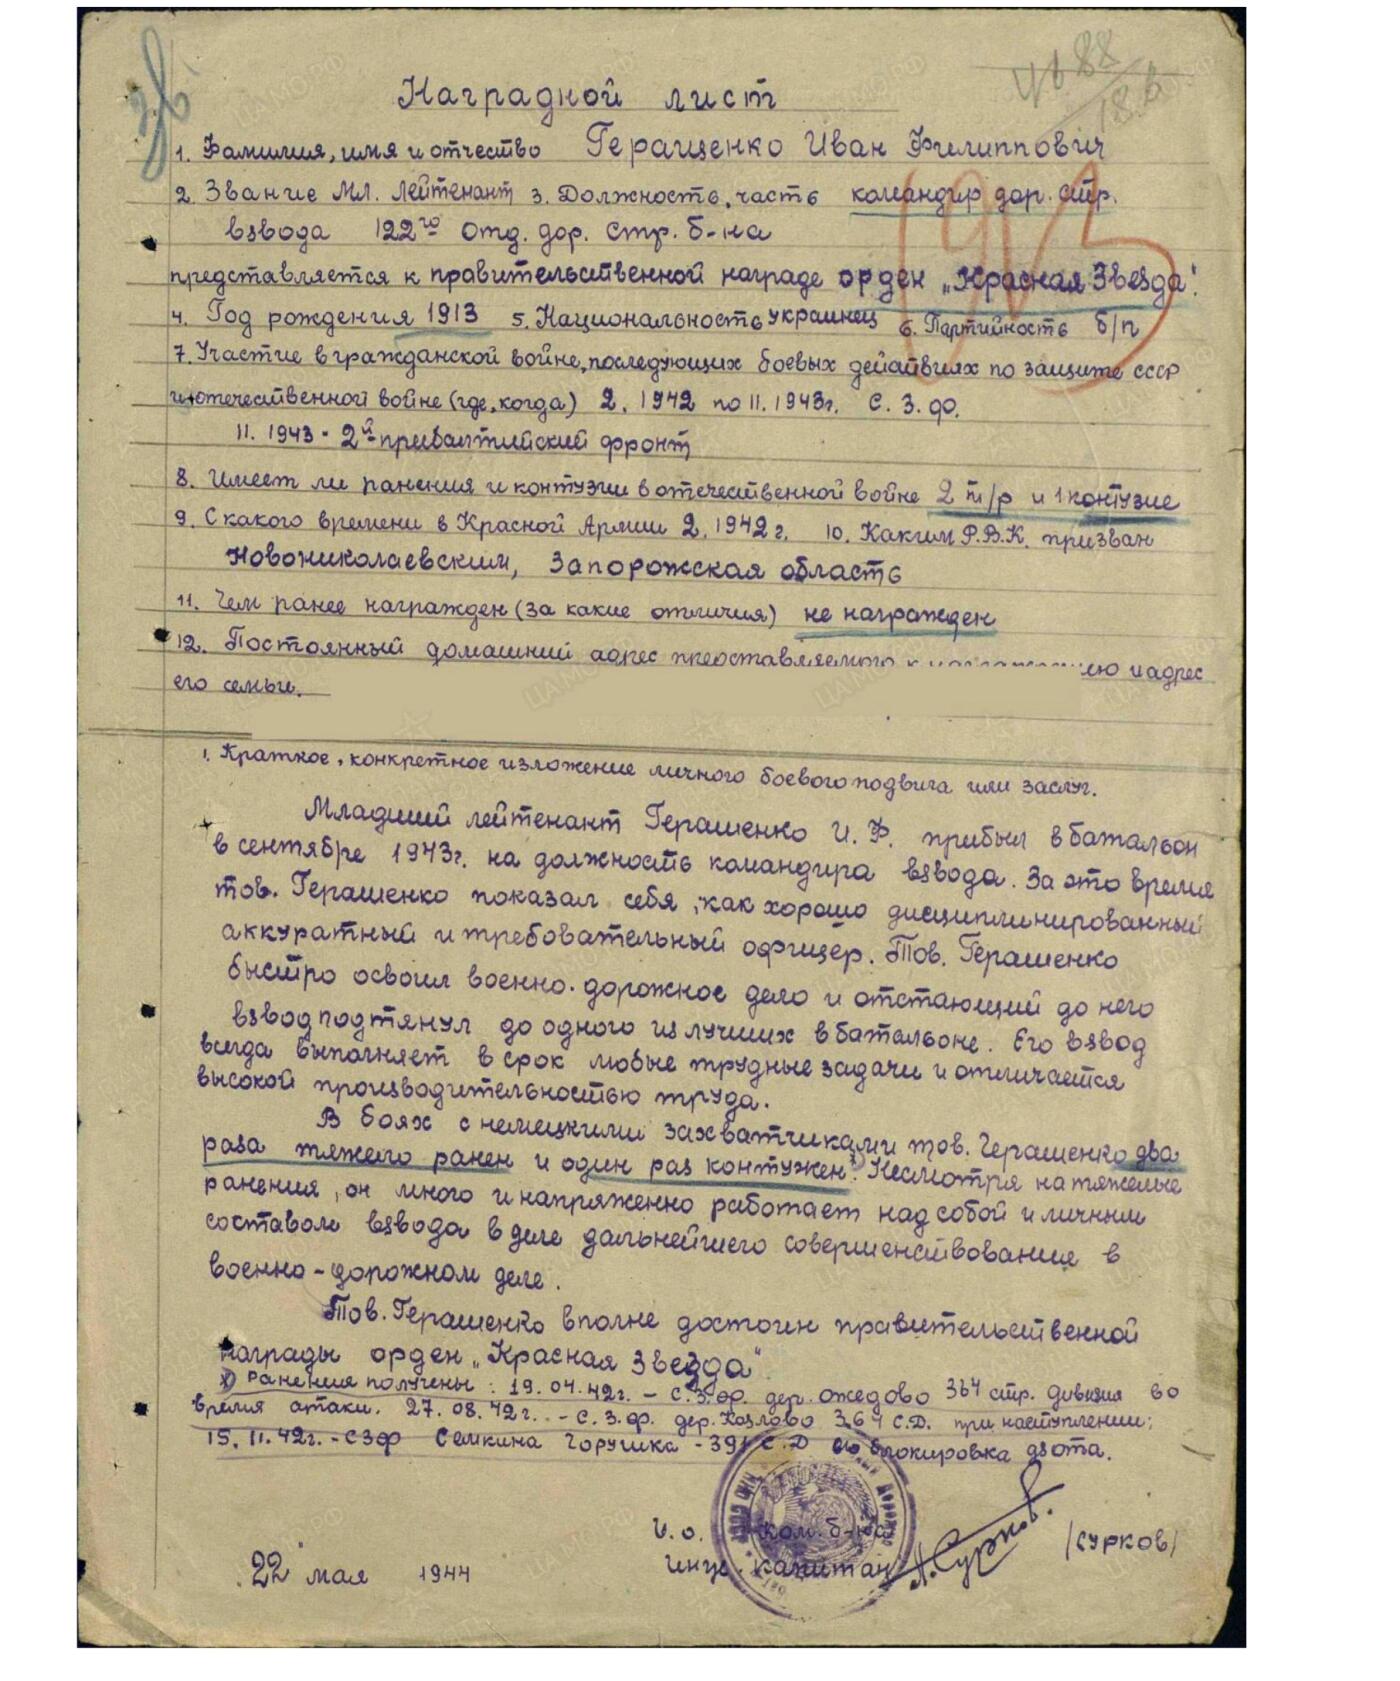 Наградной лист
1. Фамилия, имя и отчество Геращенко Иван Филиппович
2. Звание Мл. Лейтенант 3. Должность, часть командир дор. стр.
взвода 122го отд. дор. стр. б-на
представляется к правительственной награде орден „Красная Звезда".
4. Год рождения 1913 5. Национальность украинец 6. Партийность б/п
7. Участие в гражданской войне, последующих боевых действиях по защите СССР
и отечественной войне (где, когда) 2. 1942 по 11. 1943г. С. З. Ф.
11. 1943 - 2й прибалтийский фронт
8. Имеет ли ранения и контузии в отечественной войне 2 т/р и 1 контузие
9. С какого времени в Красной Армии 2. 1942г. 10. Каким Р.В.К. призван
Новониколаевским, Запорожская область
11. Чем ранее награжден (за какие отличия) не награжден
12. Постоянный домашний адрес представляемого к и адрес
его семьи.
1. Краткое, конкретное изложение личного боевого подвига или заслуг.
Младший лейтенант Герашенко И. Ф. прибыл в батальон
в сентябре 1943г. на должность командира взвода. За это время
тов. Герашенко показал себя, как хорошо дисциплинированный
аккуратный и требовательный офицер. Тов. Герашенко
быстро освоил военно-дорожное дело и отстающий до него
взвод подтянул до одного из лучших в батальоне. Его взвод
всегда выполняет в срок любые трудные задачи и отличается
высокой производительностью труда.
В боях с немецкими захватчиками тов. Герашенко два
раза тяжело ранен и один раз контужен х). Несмотря на тяжелые
ранения, он много и напряженно работает над собой и личным
составом взвода в деле дальнейшего совершенствование в
военно-дорожном деле.
Тов. Герашенко вполне достоин правительственной
награды орден „Красная Звезда"
х) Ранения получены: 19. 04. 42г. - С. З. Ф. дер. Ожедово 364 стр. дивизия во
время атаки. 27. 08. 42г. - С. З. Ф. дер. Козлово 364 С.Д. при наступлении;
15. 11. 42г. - СЗФ Семкина Горушка - 391 С.Д блокировка дзота.
И. о. ком. б-на
Инж. капитан А. Сурков. /Сурков/
22 мая 1944